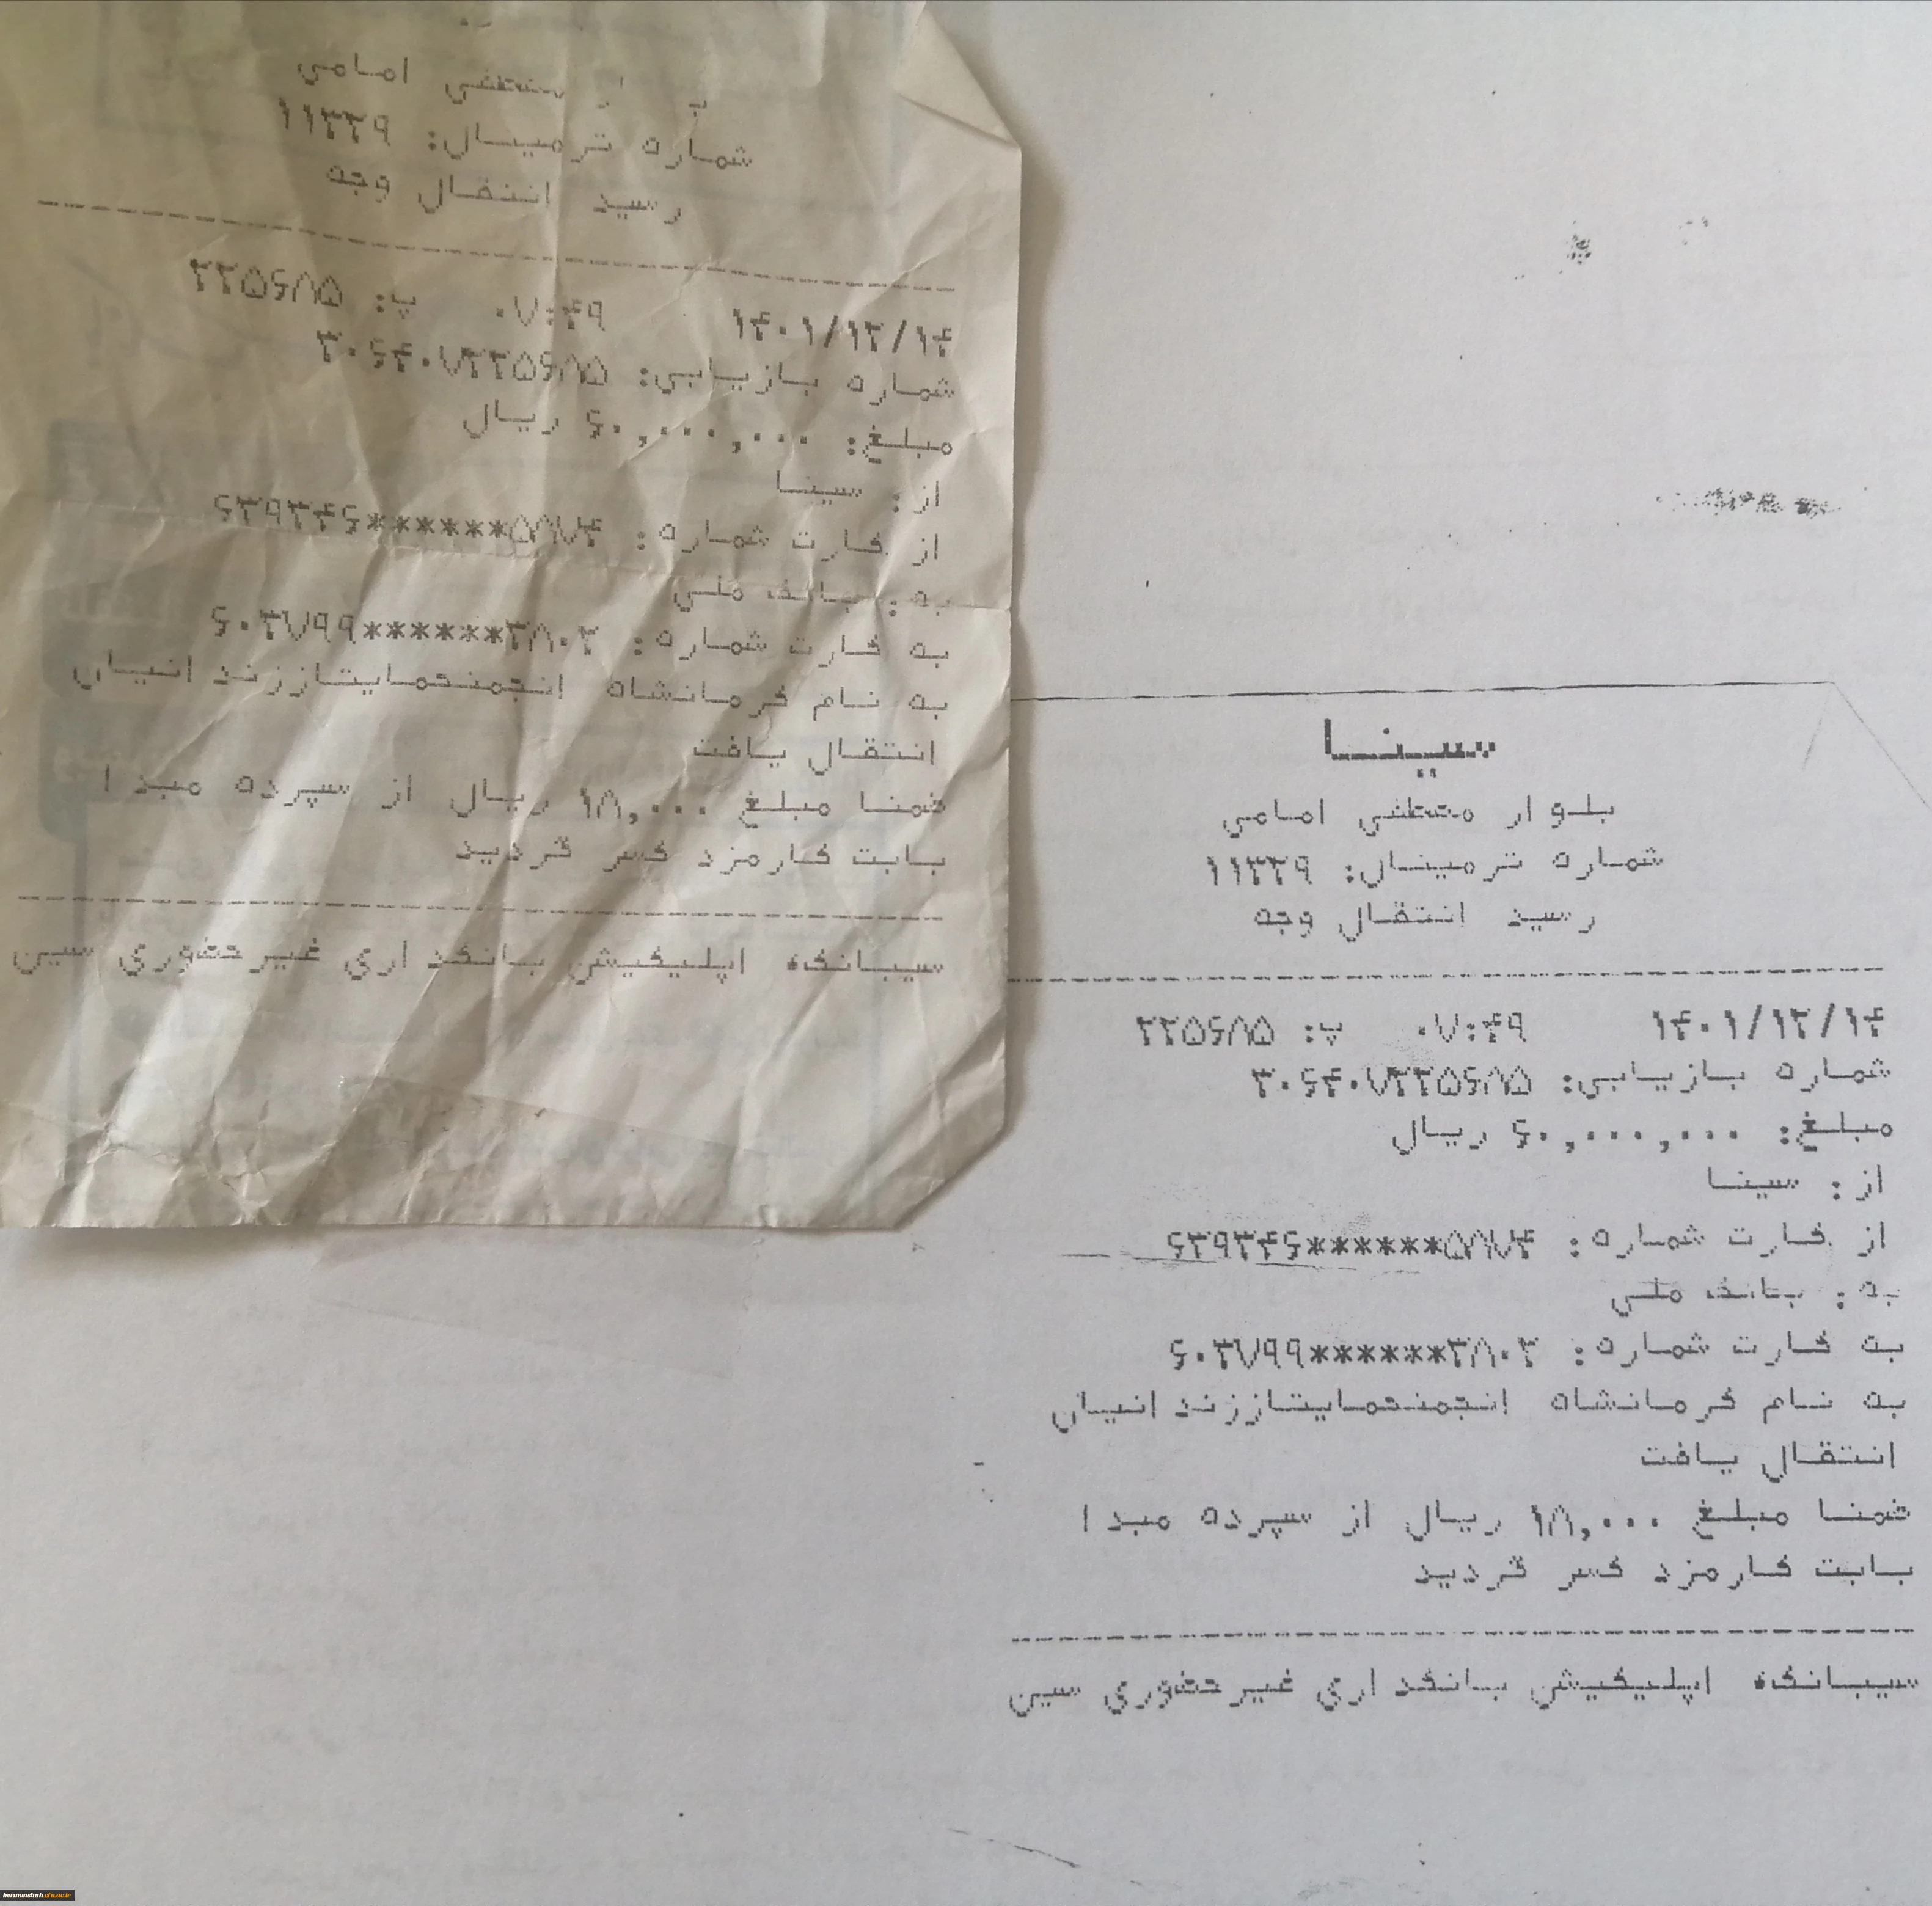 امامی
شماره ترمینال: ۱۱۲۲۹
رسید انتقال وجه
۱۴۰۱/۱۲/۱۴ ۰۷:۴۹ پ: ۲۲۵۶۸۵
شماره بازیابی: ۳۰۶۴۰۷۲۲۵۶۸۵
مبلغ: ۶۰,۰۰۰,۰۰۰ ریال
از: سینا
از کارت شماره: ۶۳۹۳۴۶******۵۸۷۴
به: بانک ملی
به کارت شماره: ۶۰۳۷۹۹******۳۸۰۲
به نام کرمانشاه انجمنحمایتاززند انیان
انتقال یافت
ضمنا مبلغ ۱۸,۰۰۰ ریال از سپرده مبد ا
بابت کارمزد کسر گردید
سیبانک، اپلیکیشن بانکد اری غیرحضوری سین
سینا
بلو ار مصطفی امامی
شماره ترمینال: ۱۱۲۲۹
رسید انتقال وجه
۱۴۰۱/۱۲/۱۴ ۰۷:۴۹ پ: ۲۲۵۶۸۵
شماره بازیابی: ۳۰۶۴۰۷۲۲۵۶۸۵
مبلغ: ۶۰,۰۰۰,۰۰۰ ریال
از: سینا
از کارت شماره: ۶۳۹۳۴۶******۵۸۷۴
به: بانک ملی
به کارت شماره: ۶۰۳۷۹۹******۳۸۰۲
به نام کرمانشاه انجمنحمایتاززند انیان
انتقال یافت
ضمنا مبلغ ۱۸,۰۰۰ ریال از سپرده مبد ا
بابت کارمزد کسر گردید
سیبانک، اپلیکیشن بانکد اری غیرحضوری سین
kermanshah.cfu.ac.ir